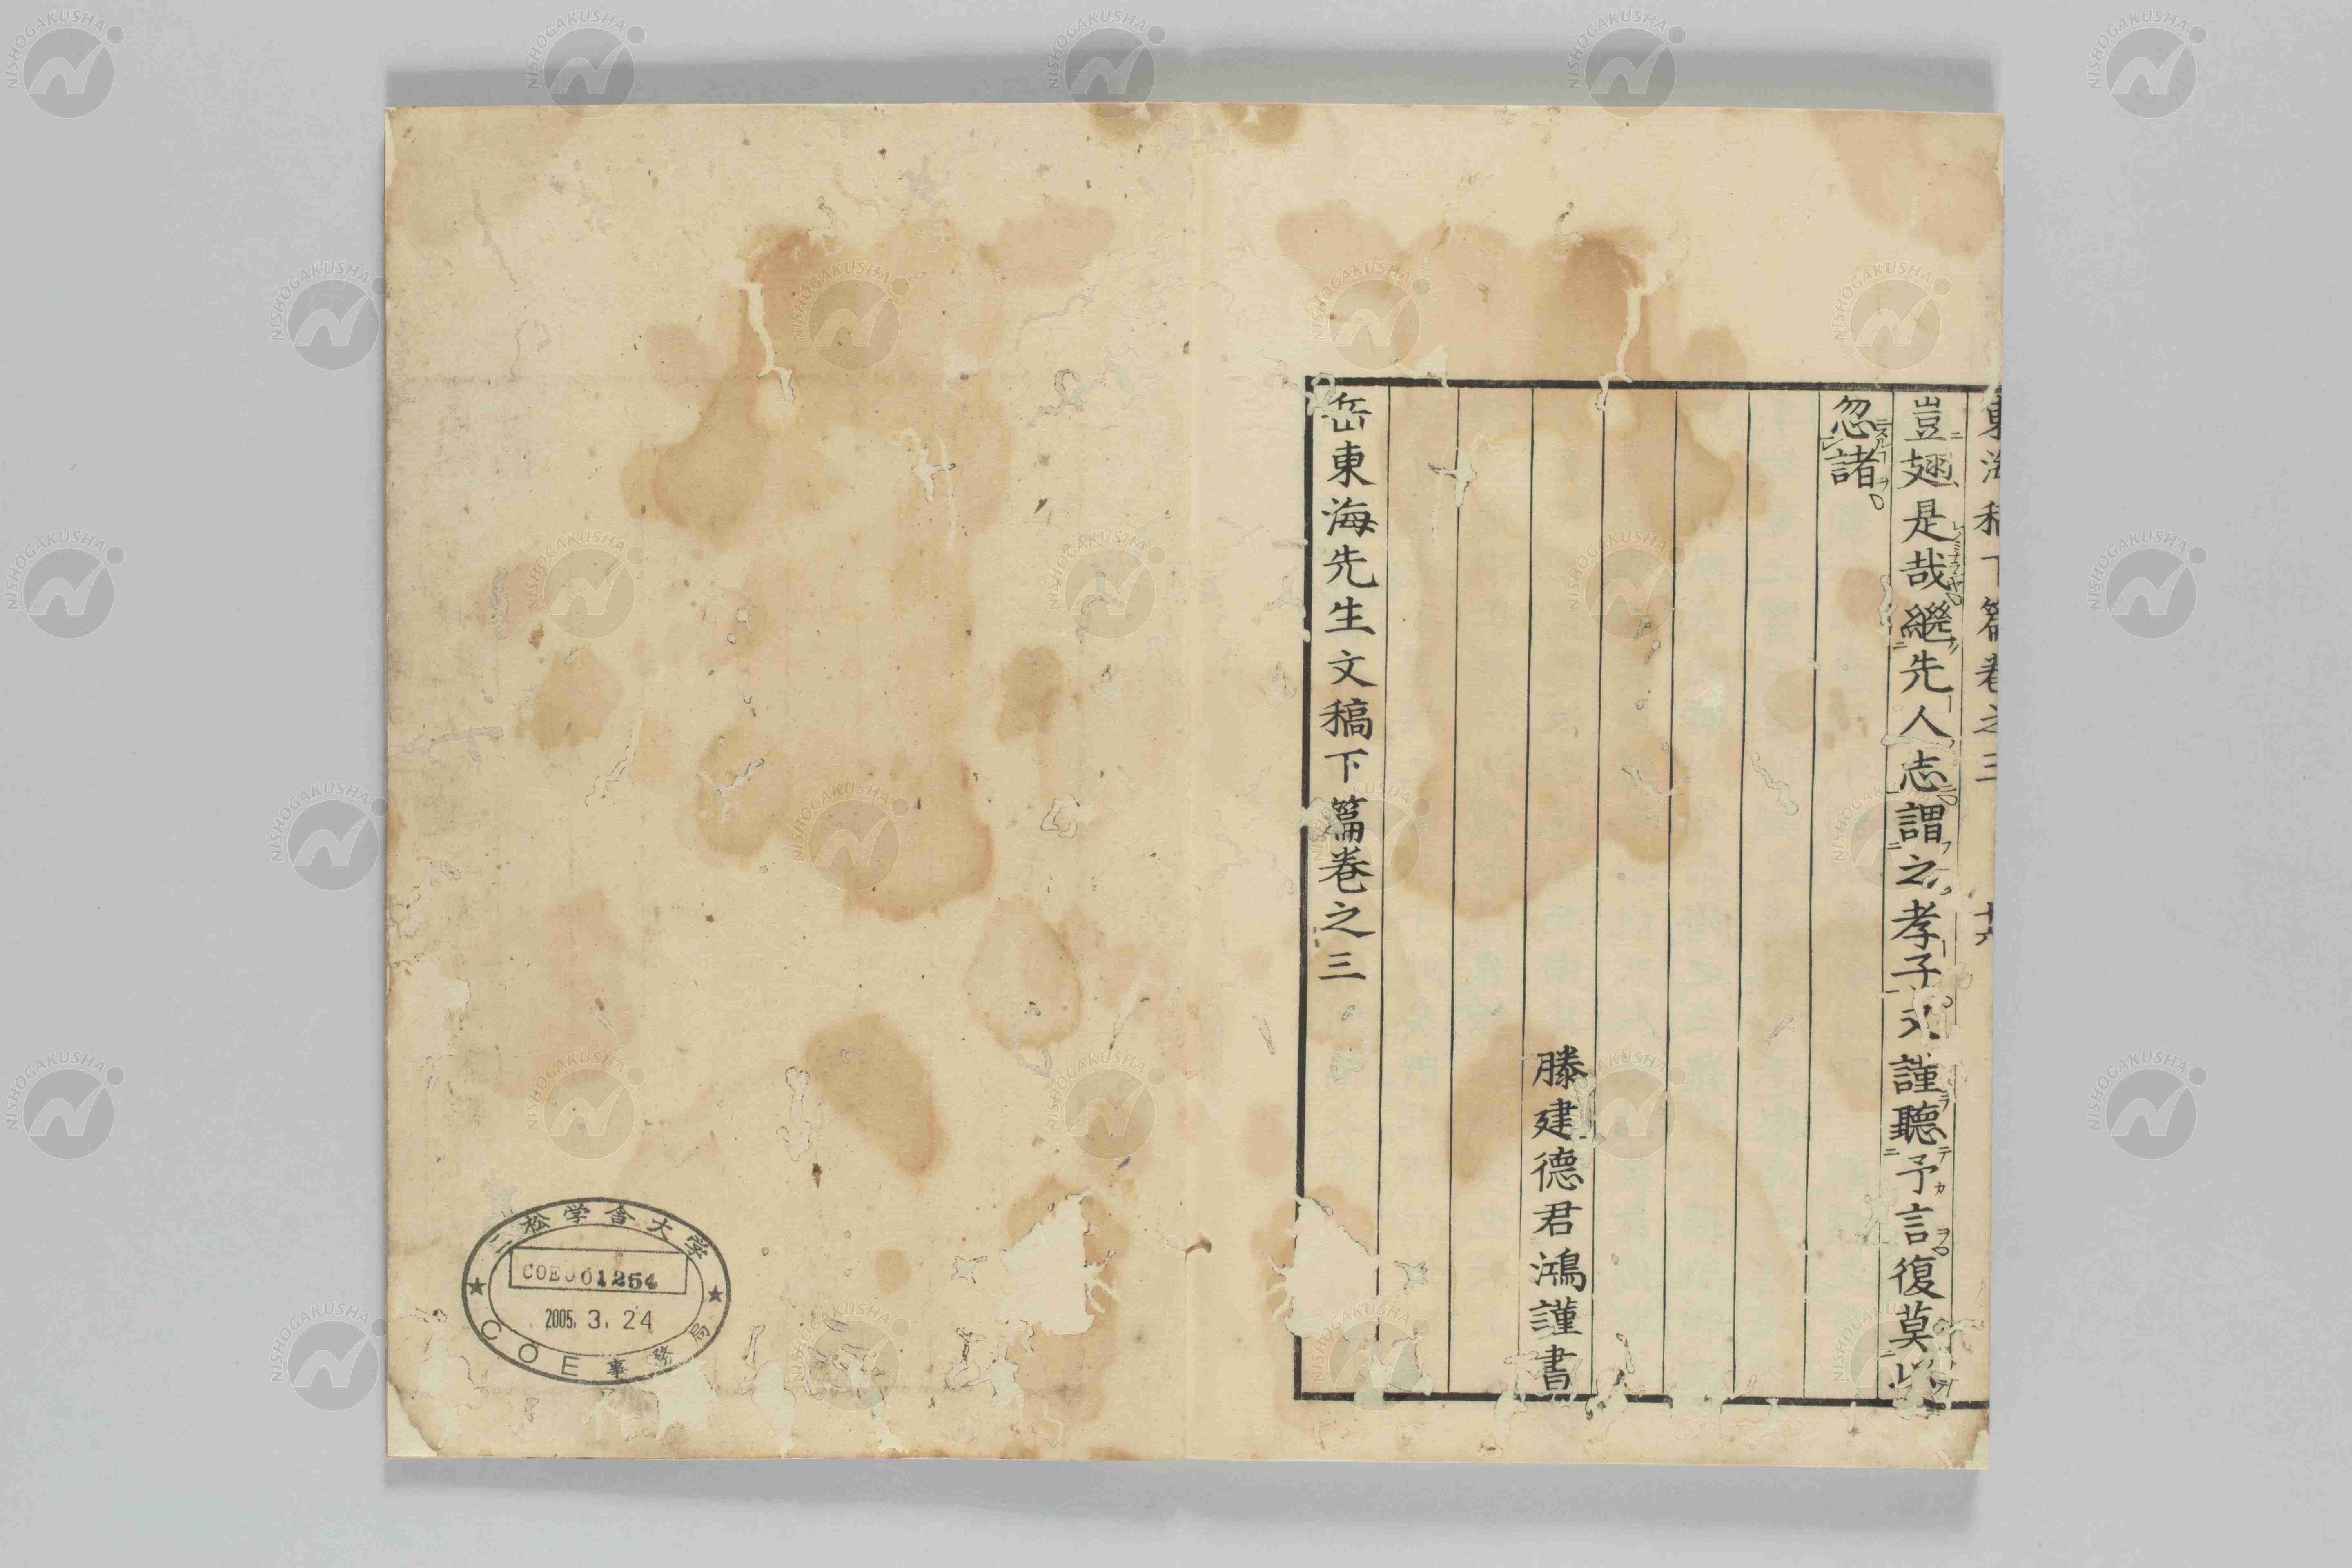 東海稿下篇卷之三 十六
豈翅是哉繼先人志謂之孝子謹聽予言復莫以
忽諸
滕建德君鴻謹書
岳東海先生文稿下篇卷之三
二松学舎大学
COE001254
2005. 3. 24
COE事務局
NISHOGAKUSHA